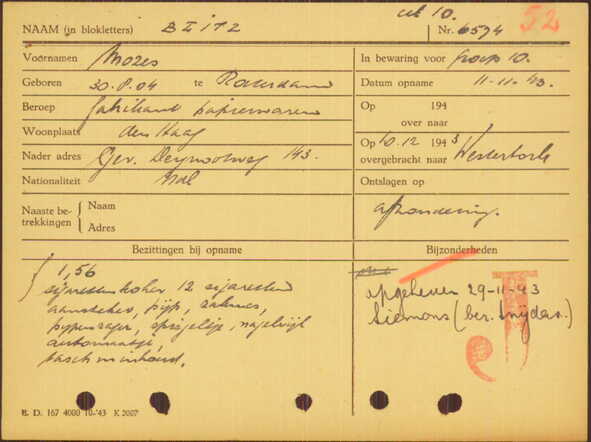 cel 10.
NAAM (in blokletters) BEITZ Nr. 6594 52
Voornamen Mozes In bewaring voor groep 10.
Geboren 30.8.04 te Rotterdam Datum opname 11-11-43.
Beroep fabrikant papierwaren Op 194
over naar
Woonplaats den Haag
Nader adres Gev. Deynootweg 143. Op 10.12 1943
overgebracht naar Westerbork
Nationaliteit Ned. Ontslagen op
Naaste be-
trekkingen
Naam
Adres
afzondering.
Bezittingen bij opname Bijzonderheden
1,56
sigarettenkoker 12 sigaretten
aansteker, pijp, zakmes,
pijpenrager, spiegeltje, nagelvijl
automaatje,
tasch m inhoud.
opgeheven 29-11-43
Siemons (ber. Snijders.)
T
E. D. 167 4000 10-'43 K 2007